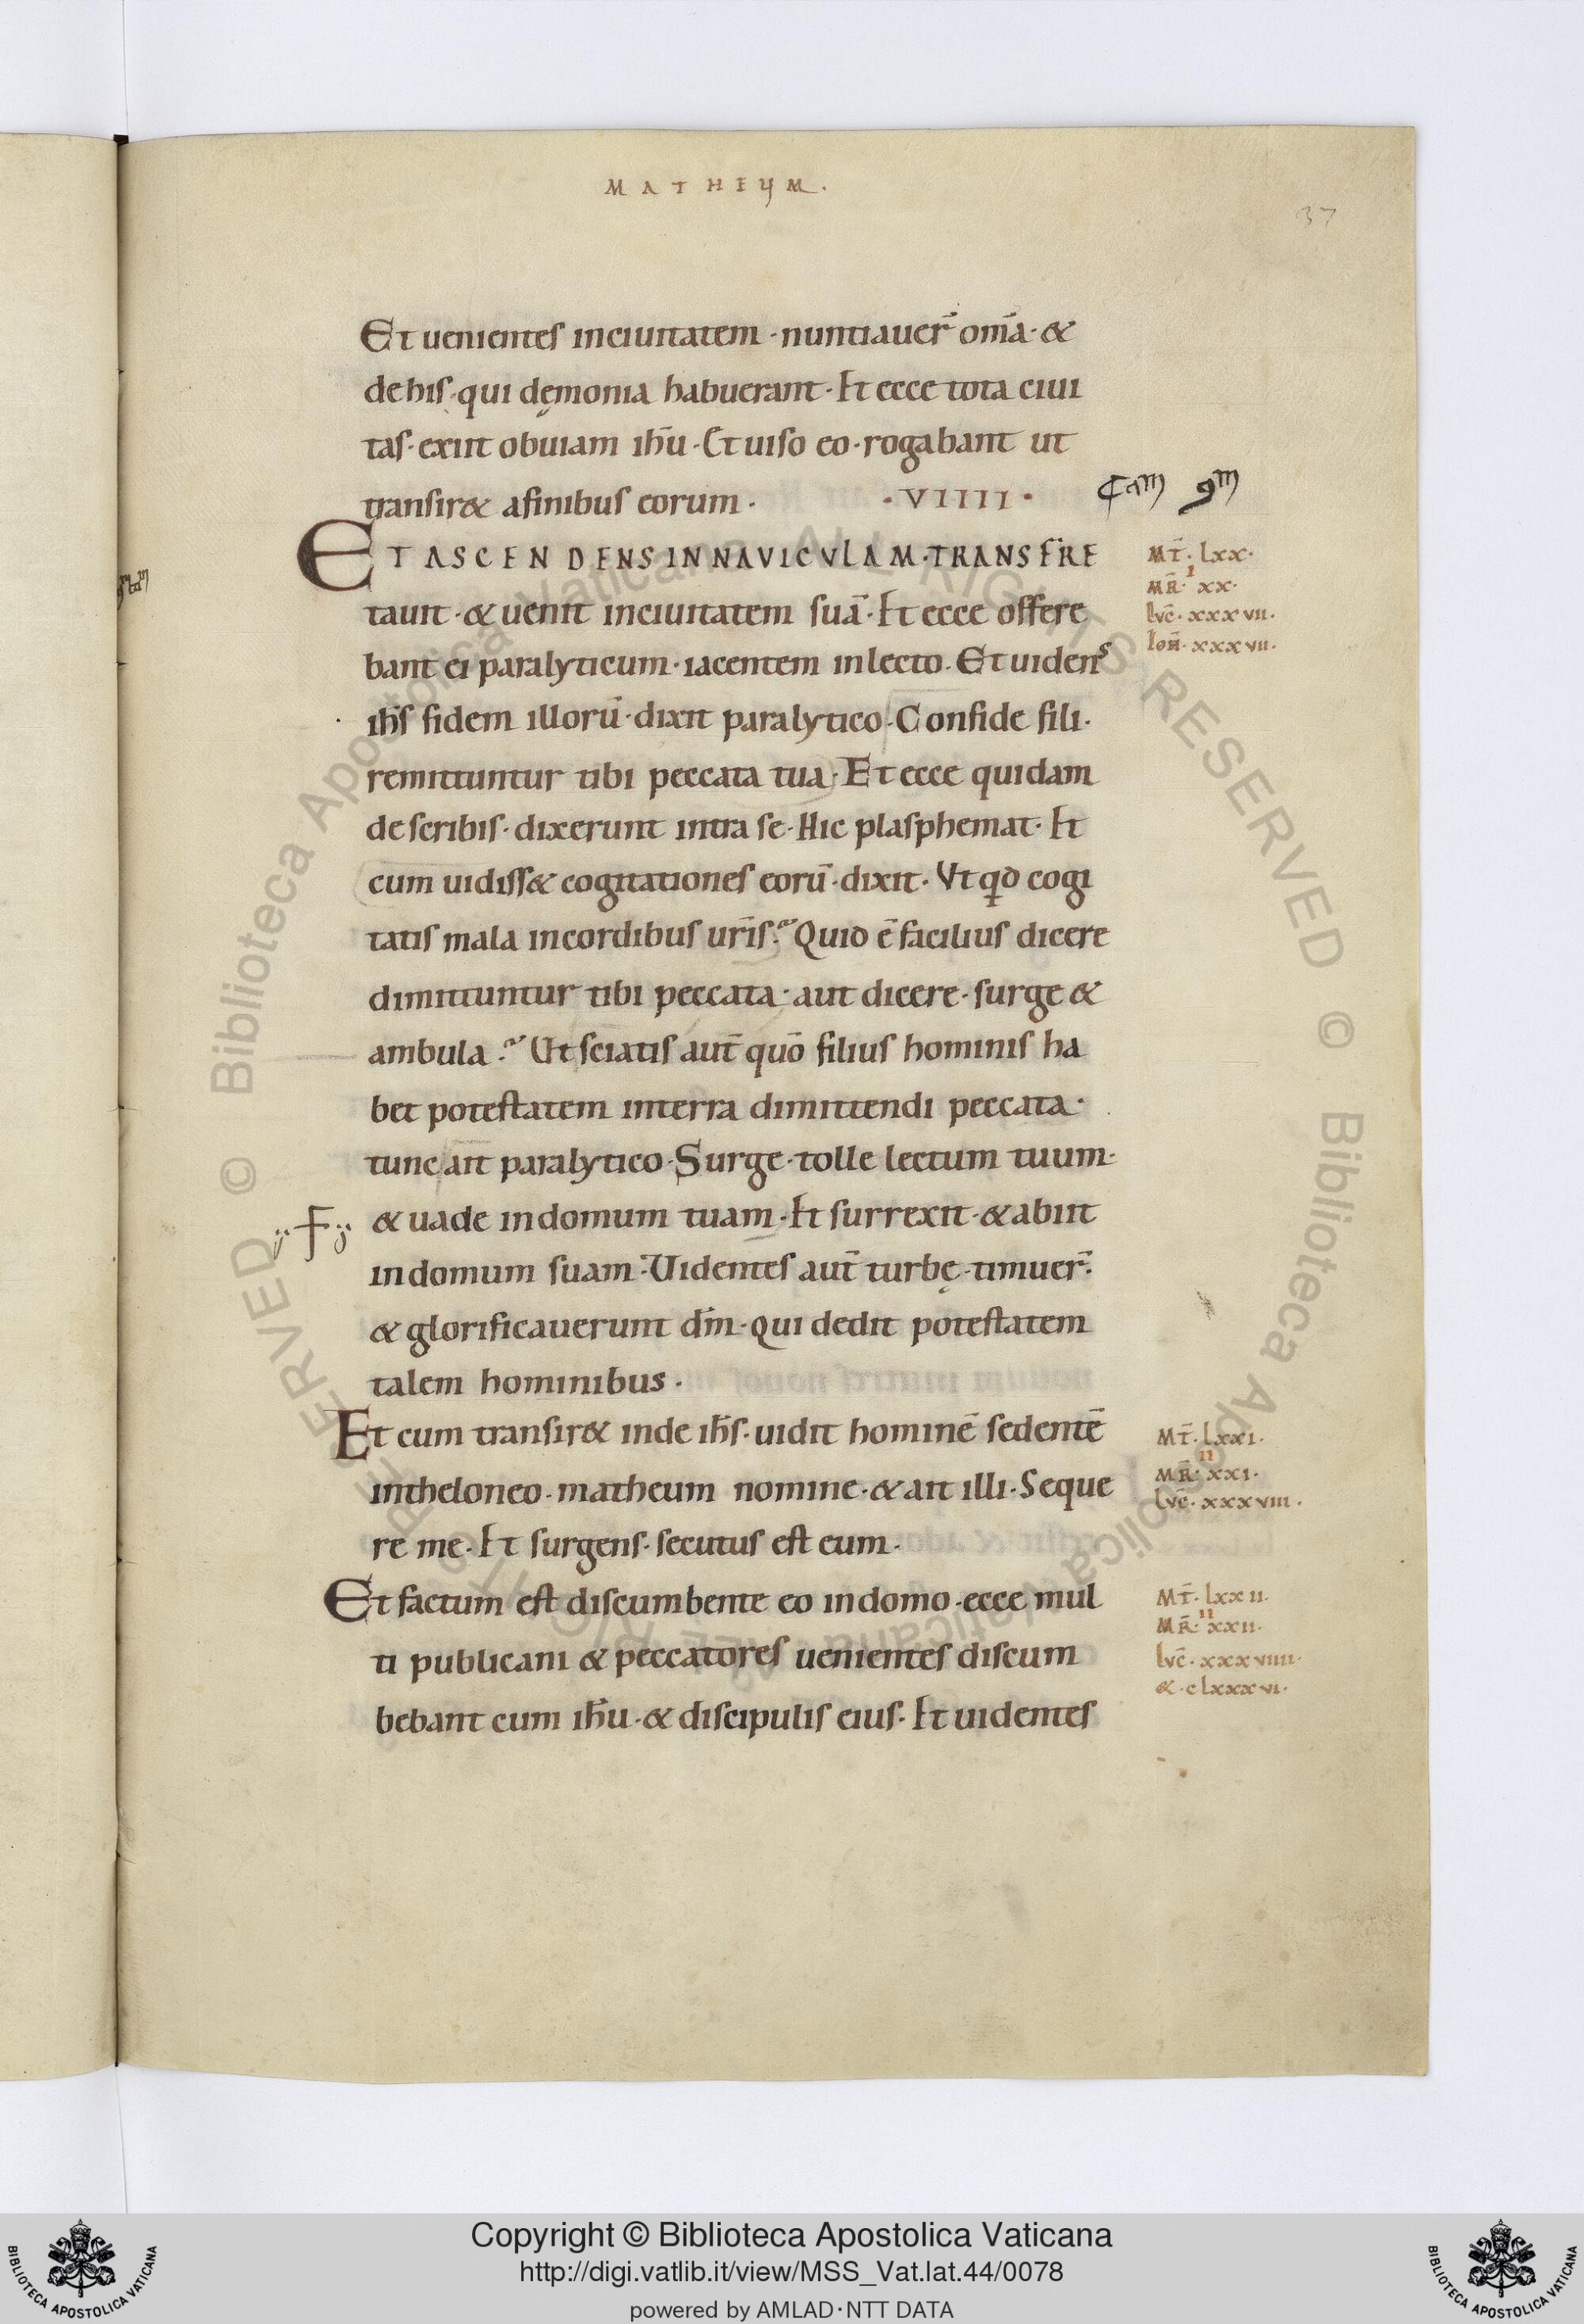 MATHEUM.
37
Et uenientes inciuitatem · nuntiauer̄ om̄a · &
de his · qui dęmonia habuerant · Et ecce tota ciui
tas · exiit obuiam ih̄u · Et uiso eo · rogabant ut
transir& afinibus eorum · · VIIII · Cam 9m
ET ASCENDENS IN NAVICVLAM · TRANSFRE
MT̄ · lxx ·
I
MR̄ · xx ·
taut · & uenit inciuitatem suā · Et ecce offere
lvc̄ · xxxvii ·
Ioh̄ · xxxvii ·
bant ei paralyticum · iacentem inlecto · Et uidens
ih̄s fidem illorū · dixit paralytico · Confide fili ·
remittuntur tibi peccata tua · Et ecce quidam
de scribis · dixerunt intra se · Hic plasphemat · Et
cum uidiss& cogitationes eorū · dixit · Vt qd cogi
tatis mala incordibus ur̄is? Quid ē facilius dicere
dimittuntur tibi peccata · aut dicere · surge &
ambula? Ut sciatis aut̄ quō filius hominis ha
bet potestatem interra dimittendi peccata ·
tunc ait paralytico · Surge · tolle lectum tuum ·
& uade indomum tuam · Et surrexit · & abiit
indomum suam · Uidentes aut̄ turbę · timuer̄ ·
& glorificauerunt dm̄ · qui dedit potestatem
talem hominibus ·
Et cum transir& inde ih̄s · uidit hominē sedentē
MT̄ · lxxi ·
II
MR̄ · xxi ·
intheloneo · matheum nomine · & ait illi · Seque
lvc̄ · xxxviii ·
re me · Et surgens · secutus est eum ·
Et factum est discumbente eo indomo · ecce mul
MT̄ · lxxii ·
II
MR̄ · xxii ·
ti publicani & peccatores uenientes discum
lvc̄ · xxxviiii ·
& · clxxxvi ·
bebant cum ih̄u · & discipulis eius · Et uidentes
© Biblioteca Apostolica Vaticana ALL RIGHTS RESERVED © Biblioteca Apostolica Vaticana ALL RIGHTS RESERVED
Copyright © Biblioteca Apostolica Vaticana
http://digi.vatlib.it/view/MSS_Vat.lat.44/0078
powered by AMLAD·NTT DATA
BIBLIOTECA APOSTOLICA VATICANA
BIBLIOTECA APOSTOLICA VATICANA